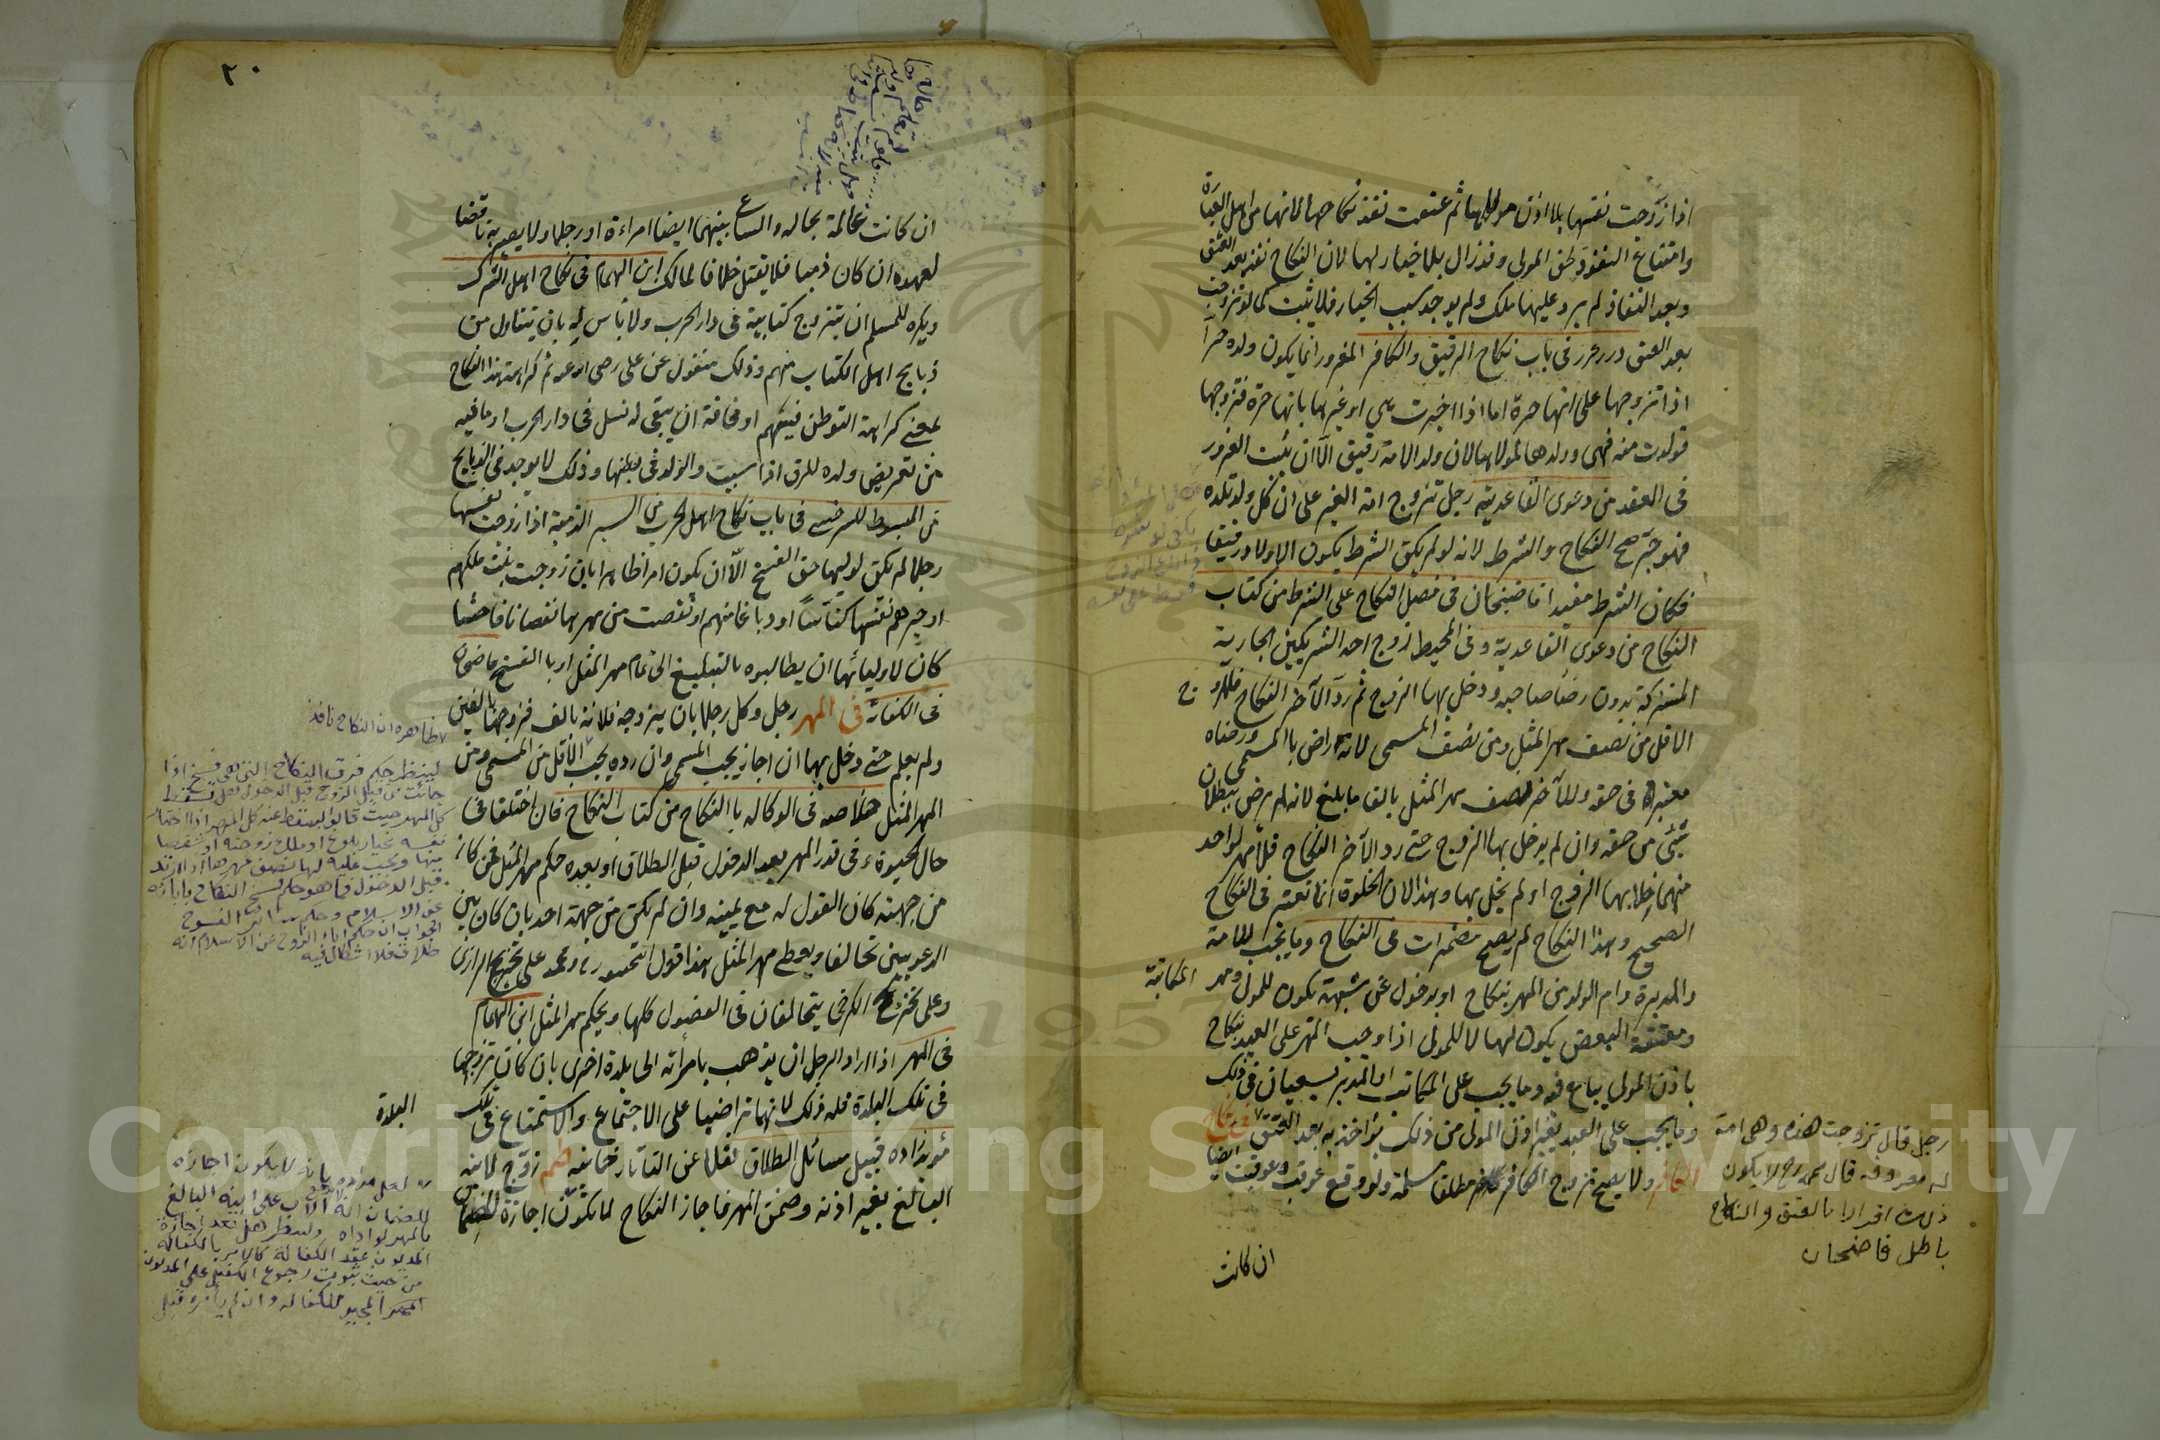 اذا زوجت نفسها بلا اذن مولاها ثم عتقت نفذ نكاحها لانها من اهل العبارة
وامتناع النفوذ لحق المولى وقد زال بلا خيار لها لان النكاح نفذ بعد العتق
وبعد النفاذ لم يرد عليها ملك ولم يوجد سبب الخيار فلا يثبت كما لو تزوجت
بعد العتق درر غرر فى باب نكاح الرقيق والكافر المغرور انما يكون ولده حرا
اذا تزوجها على انها حرة اما اذا اخبرت هى او غيرها بانها حرة فتزوجها
فولدت منه فهى وولدها لمولاها لان ولد الامة رقيق الا ان يثبت الغرور
فى العقد من دعوى القاعدية رجل تزوج امة الغير على ان كل ولد تلده
فهو حر صح النكاح والشرط لانه لو لم يكن الشرط يكون الاولاد رقيقا
فكان الشرط مفيدا قاضيخان فى فصل النكاح على الشرط من كتاب
النكاح من دعوى القاعدية وفى المحيط زوج احد الشريكين الجارية
المشتركة بدون رضا صاحبه ودخل بها الزوج ثم رد الآخر النكاح فللزوج
الاقل من نصف مهر المثل ومن نصف المسمى لانه راض بالمسمى ورضاه
معتبر فى حقه وللآخر نصف مهر المثل بالغا ما بلغ لانه لم يرض ببطلان
شئ من حقه وان لم يدخل بها الزوج حتى رد الآخر النكاح فلا مهر لواحد
منهما خلا بها الزوج او لم يخل بها وهذا لان الخلوة انما تعتبر فى النكاح
الصحيح وهذا النكاح لم يصح مضمرات فى النكاح وما يجب للامة
والمدبرة وام الولد من المهر بنكاح او بدخول عن شبهة يكون للمولى ومهر المكاتبة
ومعتقة البعض يكون لها لا للمولى اذا وجب المهر على العبد بنكاح
باذن المولى يباع فيه وما يجب على المكاتب والمدبر يسعيان فى ذلك
وما يجب على العبد بغير اذن المولى من ذلك يؤاخذ به بعد العتق فى نكاح
الكافر ولا يصح تزوج الكافر مسلمة ولو وقع عوقب وعوقبت ايضا
رجل قال تزوجت هذه وهى امة
له معروفة قال محمد رح لا يكون
ذلك اقرارا بالعتق والنكاح
باطل قاضيخان
ان كانت
٢٠
ان كانت عالمة بحاله والساعى بينهما ايضا امراءة او رجلا ولا يصير به ناقضا
لعهده ان كان ذميا فلا يقتل خلافا لمالك ابن الهمام فى نكاح اهل الشرك
ويكره للمسلم ان يتزوج كتابية فى دار الحرب ولا باس له بان يتناول من
ذبايح اهل الكتاب منهم وذلك منقول عن على رضى الله عنه ثم كراهة هذا النكاح
لمعنى كراهة التوطن فيهم او مخافة ان يبقى له نسل فى دار الحرب او ما فيه
من تعريض ولده للرق اذا سبيت والولد فى بطنها وذلك لا يوجد فى الذبايح
من المبسوط للسرخسى فى باب نكاح اهل الحرب من السير الذمية اذا زوجت نفسها
رجلا لم يكن لوليها حق الفسخ الا ان يكون امرا ظاهرا بان زوجت بنت ملكهم
او حبرهم نفسها كناسا او دباغا منهم او نقصت من مهرها نقصانا فاحشا
كان لاوليائها ان يطالبوه بالتبليغ الى تمام مهر المثل او با الفسخ
فى الكفائة فى المهر رجل وكل رجلا بان يزوجه فلانة بالف فزوجها بالفين
ولم يعلم حتى دخل بها ان اجاز يجب المسمى وان رده يجب الاقل من المسمى ومن
المهر المثل خلاصه فى الوكالة با النكاح من كتاب النكاح فان اختلفا فى
حال الحيوة فى قدر المهر بعد الدخول قبل الطلاق او بعده حكم مهر المثل فمن كان
من جهته كان القول له مع يمينه وان لم يكن من جهة احد بان كان بين
الدعويين تحالفا ويعطى مهر المثل هذا قول ابى حنيفة ومحمد على تخريج الرازى
وعلى تخريج الكرخى يتحالفان فى الفصول كلها ويحكم مهر المثل ابن الهمام
فى المهر اذا اراد الرجل ان يذهب بامرأته الى بلدة اخرى بان كان تزوجها
فى تلك البلدة فله ذلك لانهما تراضيا على الاجتماع والاستمتاع فى تلك
البلدة
مؤيد زاده قبيل مسائل الطلاق نقلا عن التاتارخانيه زوج لابنه
البالغ بغير اذنه وضمن المهر فاجاز النكاح لا يكون اجازة للضمان
ظاهره ان النكاح نافذ
لينظر حكم فرق النكاح التى هى فسخ اذا
جائت من قبل الزوج قبل الدخول
كل المهر حيث قالوا يسقط عنه كل المهر اذا اختار
نفسه بخيار بلوغ او ملك زوجته او شقصا
منها ويجب عليه لها نصف مهرها اذا ارتد
قبل الدخول فما هو حكم فسخ النكاح بابائه
عن الاسلام وحكم سائر الفسوخ
الجواب ان حكم اباء الزوج عن الاسلام انه
طلاق فلا اشكال فيه
لعل مراده بانه لا يكون اجازة
للضمان انه لا يرجع الاب على ابنه البالغ
بالمهر لو اداه ولينظر هل تعد اجازة
المديون عقد الكفالة كالامر بالكفالة
من حيث ثبوت رجوع الكفيل على المديون
المجيز للكفالة وان لم يأمره قبل